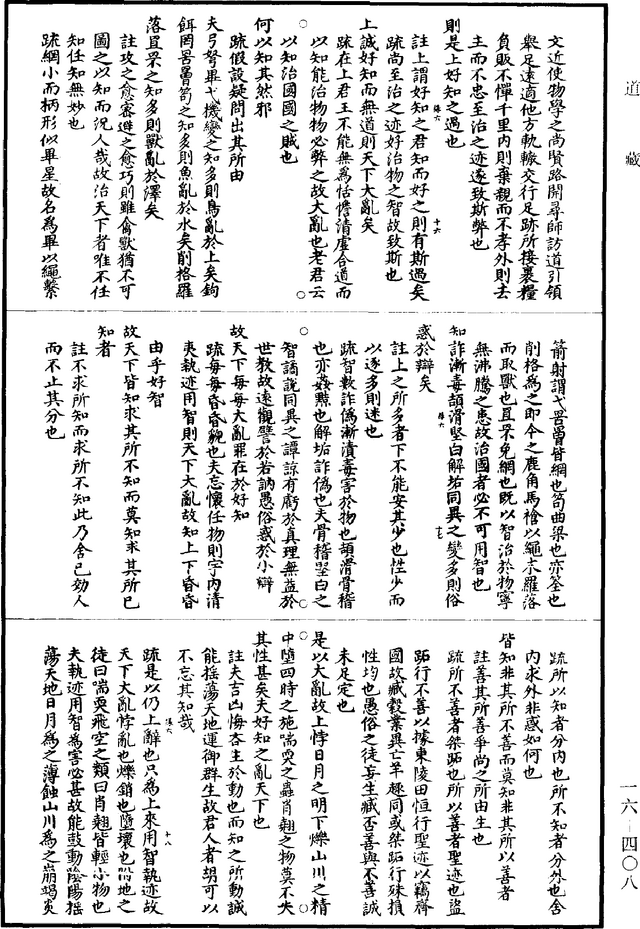 道藏
文近使物學之尚賢路開尋師訪道引領
舉足遠適他方軌轍交行足跡所接裹糧
負販不憚千里內則棄親而不孝外則去
主而不忠至治之迹遂致斯弊也
則是上好知之過也
註上謂好知之君知而好之則有斯過矣
疏尚至治之迹好治物之智故致斯也
上誠好知而無道則天下大亂矣
疏在上君王不能無為恬憺清虛合道而
以知能治物物必弊之故大亂也老君云
以知治國國之賊也
何以知其然邪
疏假設疑問出其所由
夫弓弩畢弋機變之知多則鳥亂於上矣鉤
餌罔罟罾笱之知多則魚亂於水矣削格羅
落罝罘之知多則獸亂於澤矣
註攻之愈審避之愈巧則雖禽獸猶不可
圖之以知而況人哉故治天下者唯不任
知任知無妙也
疏網小而柄形似畢星故名為畢以繩繫
箭射謂弋罟罾皆網也笱曲梁也亦筌也
削格為之即今之鹿角馬槍以繩木羅落
而取獸也罝罘兔網也既以智治於物寧
無沸騰之患故治國者必不可用智也
知詐漸毒頡滑堅白解垢同異之變多則俗
惑於辯矣
註上之所多者下不能安其少也性少而
以逐多則迷也
疏智數詐偽漸漬毒害於物也頡滑骨稽
也亦姦黠也解垢詐偽也夫骨稽堅白之
智譎詭同異之譚諒有虧於真理無益於
世教故遠觀譬於若訥愚俗惑於小辯
故天下每每大亂罪在於好知
疏每每昏昏貌也夫忘懷任物則宇內清
夷執迹用智則天下大亂故知上下昏昏
由乎好智
故天下皆知求其所不知而莫知求其所已
知者
註不求所知而求所不知此乃舍已効人
而不止其分也
疏所以知者分內也所不知者分外也舍
內求外非惑如何也
皆知非其所不善而莫知非其所以善者
註善其所善爭尚之所由生也
疏所不善者桀跖也所以善者聖迹也盜
跖行不善以據東陵田恒行聖迹以竊齊
國故臧穀業異亡羊趣同或桀跖行殊損
性均也愚俗之徒妄生臧否善與不善誠
未足定也
是以大亂故上悖日月之明下爍山川之精
中墮四時之施喘耎之蟲肖翹之物莫不失
其性甚矣夫好知之亂天下也
註夫吉凶悔吝生於動也而知之所動誠
能搖蕩天地運御群生故君人者胡可以
不忘其知哉
疏是以仍上辭也只為上來用智執迹故
天下大亂悖亂也爍銷也墮壞也附地之
徒曰喘耎飛空之類曰肖翹皆輕小物也
夫執迹用智為害必甚故能鼓動陰陽搖
蕩天地日月為之薄蝕山川為之崩竭炎
一六—四〇八